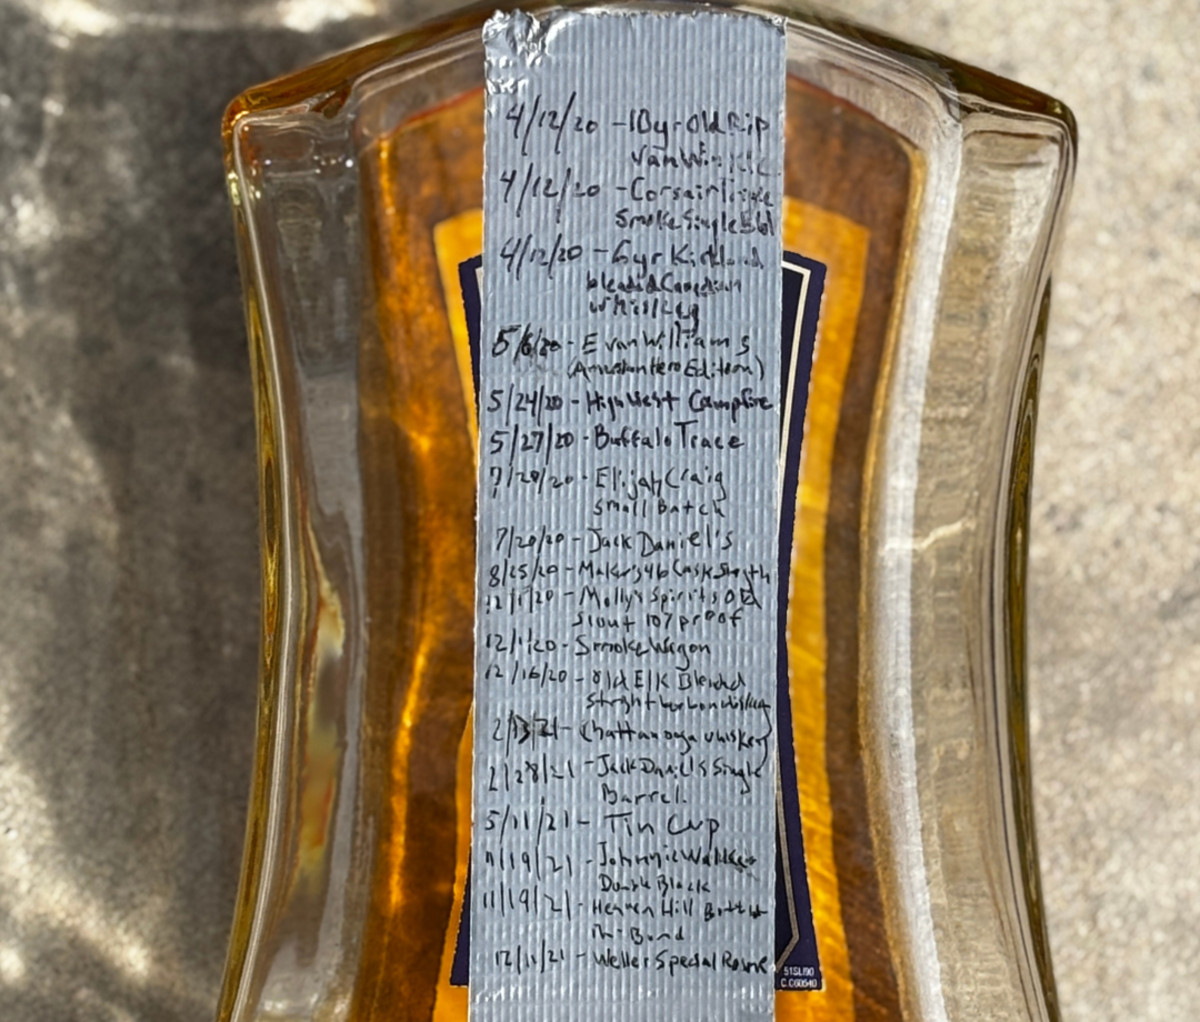 4/12/20 - 10yr Old Rip
Van Winkle
4/12/20 - Corsair Triple
Smoke Single Bbl
4/12/20 - 6yr Kirkland
blended Canadian
Whiskey
5/6/20 - Evan Williams
(American Hero Edition)
5/24/20 - High West Campfire
5/27/20 - Buffalo Trace
7/20/20 - Elijah Craig
Small Batch
7/20/20 - Jack Daniel's
8/25/20 - Maker's 46 Cask Strength
12/1/20 - Molly's Spirits
Stout 107 proof
12/1/20 - Smoke Wagon
12/16/20 - Old Elk Blend
Strght burbon Whiskey
2/13/21 - Chattanooga whiskey
2/28/21 - Jack Daniel's Single
Barrel.
5/11/21 - Tin Cup
/19/21 - Johnnie Walker
Double Black
11/19/21 - Heaven Hill Bottled
In-Bond
12/11/21 - Weller Special Reserve
51SL/90
C.C60640